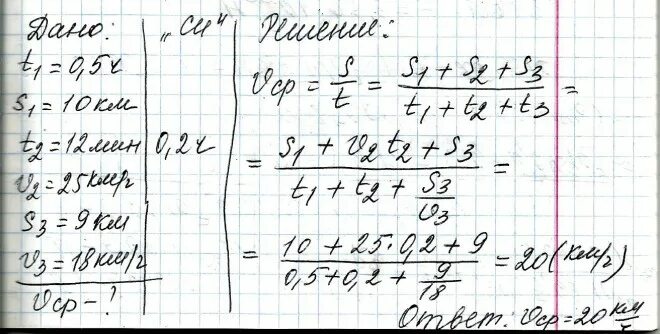 Дано: „СИ" Решение:
t₁ = 0,5 ч
s₁ = 10 км
t₂ = 12 мин 0,2 ч
v₂ = 25 км/ч
s₃ = 9 км
v₃ = 18 км/ч
vср - ?
vср = s/t = (s₁ + s₂ + s₃)/(t₁ + t₂ + t₃) =
= (s₁ + v₂ t₂ + s₃)/(t₁ + t₂ + s₃/v₃) =
= (10 + 25·0,2 + 9)/(0,5 + 0,2 + 9/18) = 20 (км/ч)
Ответ: vср = 20 км/ч